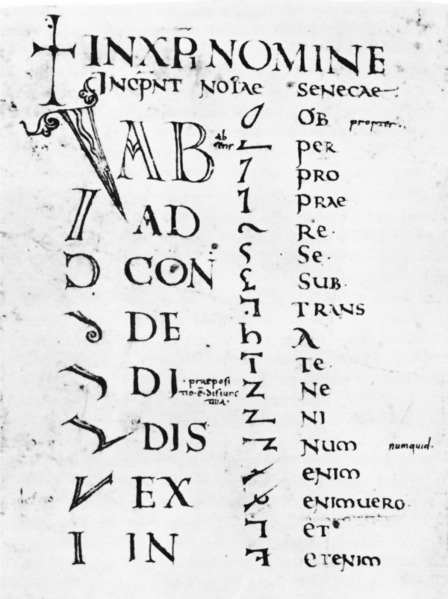 INXP̅I NOMINE
INCP̅NT NOTAE SENECAE
AB
AD
CON
DE
DI praeposi
tio ē disiunc
tiua
DIS
EX
IN
OB propter
PER
PRO
PRAE
RE·
SE·
SUB·
TRANS
A
TE·
NE
NI
NUM numquid·
ENIM
ENIMUERO
ET
ETENIM